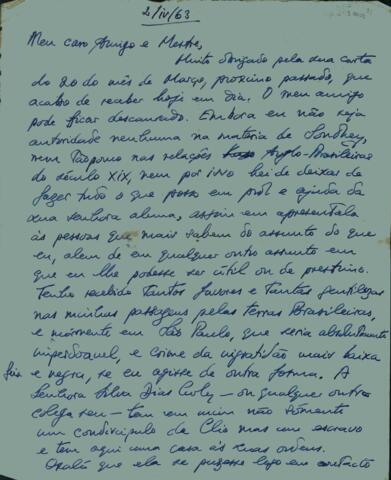 2/iv/63
Meu caro Amigo e Mestre,
Muito obrigado pela sua carta
do 20 do mês de Março, proximo passado, que
acabo de receber hoje em dia. O meu amigo
pode ficar descansado. Embora eu não seja
autoridade nenhuma na materia de Southey,
nem tãopouco nas relações Anglo-Brasileiras
do século XIX, nem por isso hei de deixar de
fazer tudo o que possa em prol e ajuda da
sua senhora aluna, assim em apresentala
às pessoas que mais sabem do assunto do que
eu, alem de em qualquer outro assunto em
que eu lhe podesse ser útil ou de prestimo.
Tenho recebido tantos favores e tantas gentilezas
nas minhas passagens pelas terras Brasileiras,
e mórmente em São Paulo, que seria absolutamente
imperdoavel, e crime da ingratidão mais baixa
e negra, se eu agisse de outra forma. A
Senhora Silva Dias - ou qualquer outro
colega seu - tem em mim não sómente
um condiscipulo de Clio mas um escravo
e tem aqui uma casa às suas ordens.
Oxalá que ela se pusesse logo em contacto